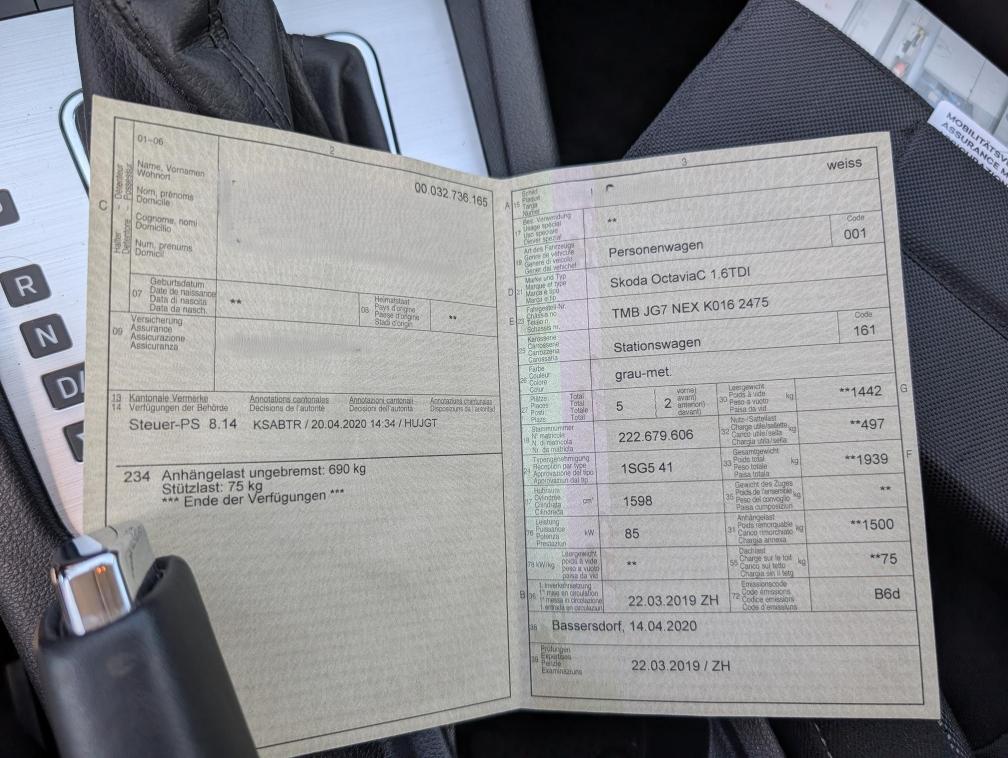 R
N
D/
MOBILITÄTSV
ASSURANCE M
2
01–06
C
Name, Vornamen
Wohnort
Nom, prénoms
Domicile
Cognome, nomi
Domicilio
Num, prenums
Domicil
00.032.736.165
07
Geburtsdatum
Date de naissance
Data di nascita
Data da nasch.
**
08
Heimatstaat
Pays d'origine
Paese d'origine
Stadi d'origin
**
09
Versicherung
Assurance
Assicurazione
Assicuranza
13 Kantonale Vermerke Annotations cantonales Annotazioni cantonali Annotaziuns chantunalas
14 Verfügungen der Behörde Décisions de l'autorité Decisioni dell'autorità Disposiziuns da l'autoritad
Steuer-PS 8.14 KSABTR / 20.04.2020 14:34 / HUJGT
234 Anhängelast ungebremst: 690 kg
Stützlast: 75 kg
*** Ende der Verfügungen ***
3
A 15
Schild
Plaque
Targa
Numer
weiss
17
Bes. Verwendung
Usage spécial
Uso speciale
Diever spezial
**
19
Art des Fahrzeugs
Genre de véhicule
Genere di veicolo
Gener dal vehichel
Personenwagen
Code
001
D 21
Marke und Typ
Marque et type
Marca e tipo
Marca e tip
Skoda OctaviaC 1.6TDI
E 23
Fahrgestell-Nr.
Châssis no
Telaio n.
Schassis nr.
TMB JG7 NEX K016 2475
25
Karosserie
Carrosserie
Carrozzeria
Carossaria
Stationswagen
Code
161
26
Farbe
Couleur
Colore
Colur
grau-met.
27
Plätze: Total
Places: Total
Posti: Totale
Plazs: Total
5
2
vorne)
avant)
anteriori)
davant)
30
Leergewicht
Poids à vide
Peso a vuoto
Paisa da vid
kg
**1442
G
18
Stammnummer
N° matricule
N. di matricola
Nr. da matricla
222.679.606
32
Nutz-/Sattellast
Charge utile/sellette
Carico utile/sella
Chargia utila/sella
kg
**497
24
Typengenehmigung
Réception par type
Approvazione del tipo
Approvaziun dal tip
1SG5 41
33
Gesamtgewicht
Poids total
Peso totale
Paisa totala
kg
**1939
F
37
Hubraum
Cylindrée
Cilindrata
Cilindrada
cm³
1598
35
Gewicht des Zuges
Poids de l'ensemble
Peso del convoglio
Paisa cumposiziun
kg
**
76
Leistung
Puissance
Potenza
Prestaziun
kW
85
31
Anhängelast
Poids remorquable
Carico rimorchiato
Chargia annexa
kg
**1500
78 kW/kg
Leergewicht
poids à vide
peso a vuoto
paisa da vid
**
55
Dachlast
Charge sur le toit
Carico sul tetto
Chargia sin il tetg
kg
**75
B 36
1. Inverkehrsetzung
1re mise en circulation
1a messa in circolazione
1. entrada en circulaziun
22.03.2019 ZH
72
Emissionscode
Code émissions
Codice emissioni
Code d'emissiuns
B6d
38
Bassersdorf, 14.04.2020
39
Prüfungen
Expertises
Perizie
Examinaziuns
22.03.2019 / ZH